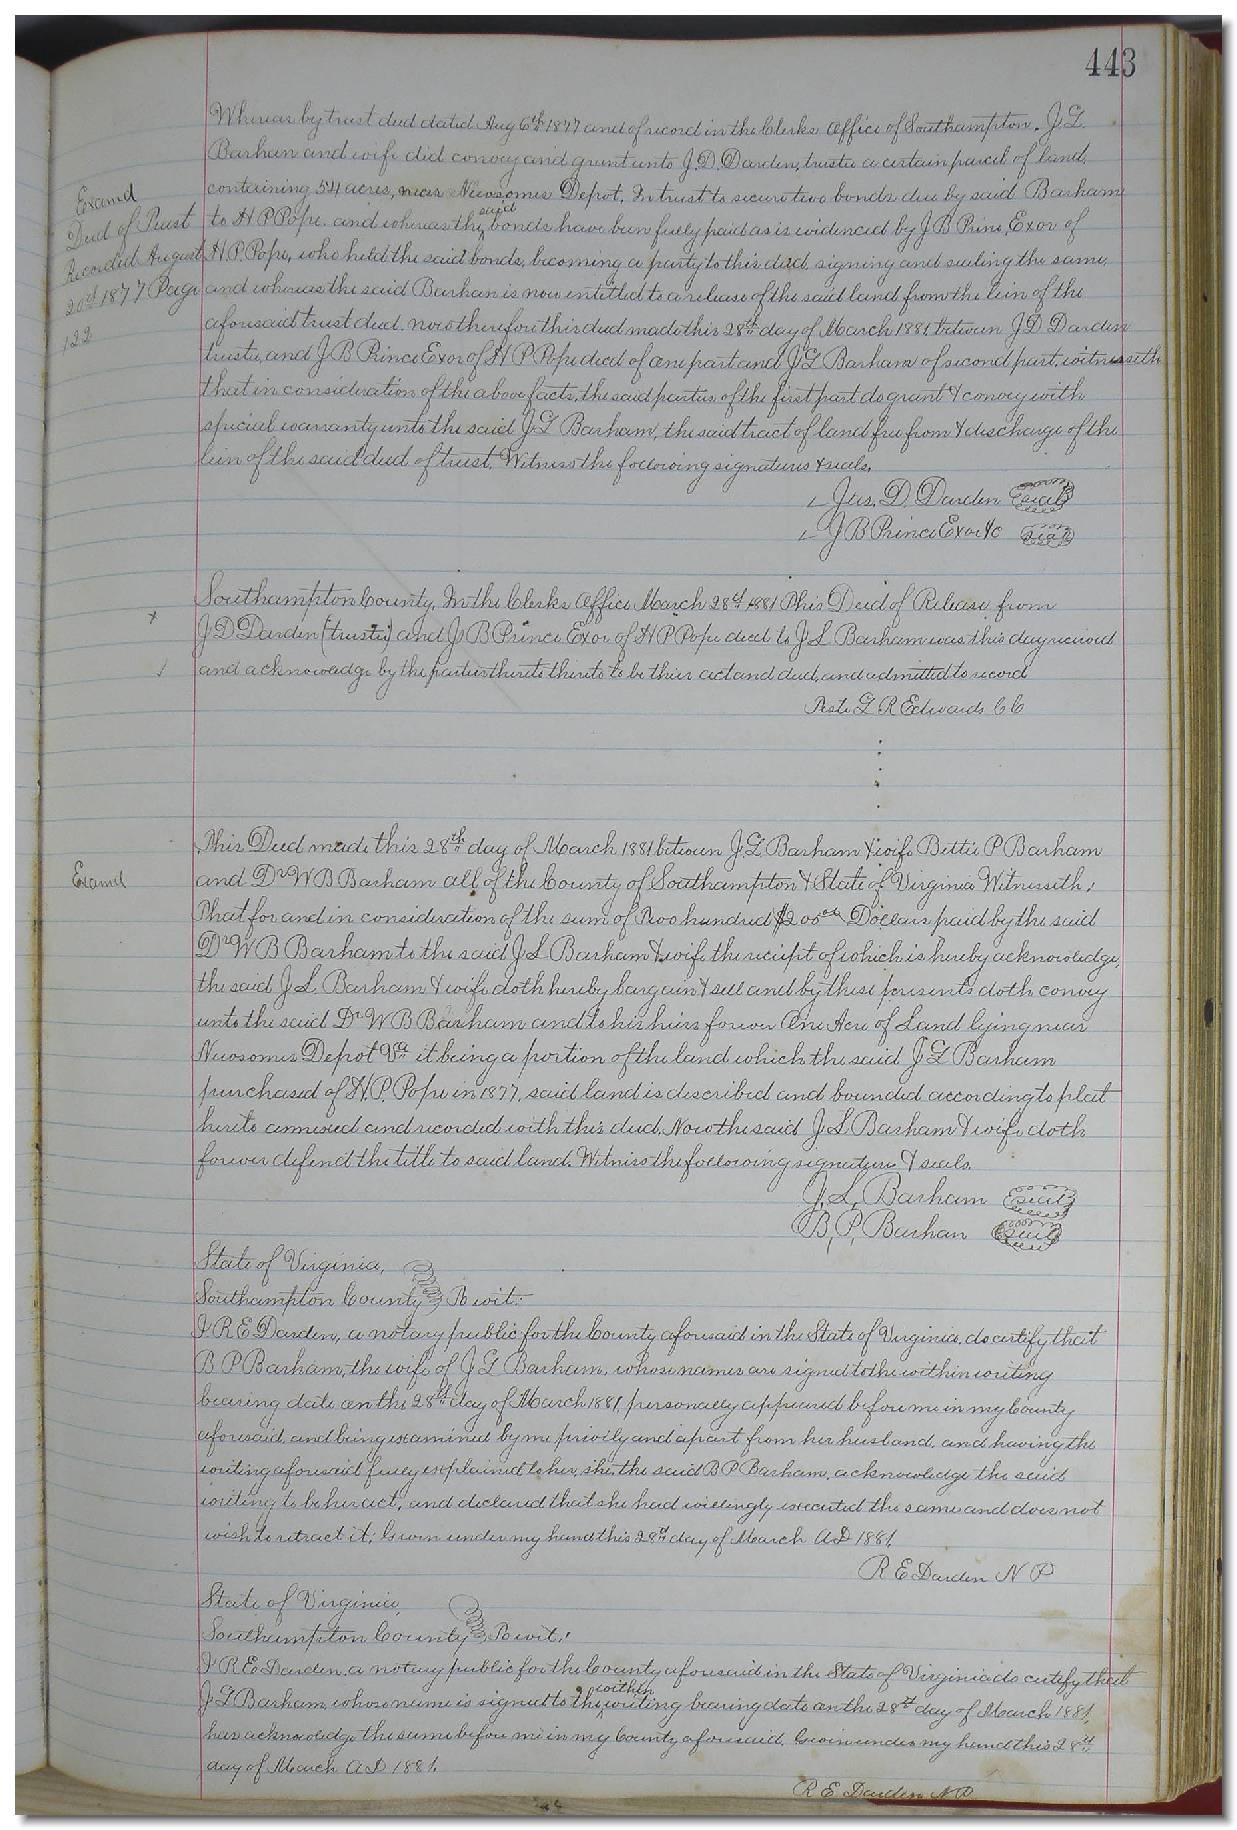 443
Whereas by trust deed dated Aug 6th 1877 and of record in the Clerks office of Southampton. J. L.
Barham and wife did convey and grant unto J. D. Darden, trustee a certain parcel of land,
containing 54 acres, near Newsomes Depot. In trust to secure two bonds due by said Barham
to H P Pope. and whereas the said bonds have been fully paid as is evidenced by J B Prince, Exor of
H. P. Pope, who held the said bonds, becoming a party to this deed, signing and sealing the same,
and whereas the said Barham is now entitled to a release of the said land from the lein of the
aforesaid trust deed. now therefore this deed made this 28th day of March 1881, between J D Darden
trustee, and J B Prince Exor of H P Pope decd of one part and J L Barham of second part, witnesseth
that in consideration of the above facts, the said parties of the first part do grant & convey with
special warranty unto the said J L Barham, the said tract of land free from & discharge of the
lein of the said deed of trust. Witness the following signatures & seals.
Jas. D. Darden seal
J B Prince Exor &c seal
Examd
Deed of Trust
Recorded August
20th 1877 Page
122
Southampton County, In the Clerks office March 28th 1881 This Deed of Release from
J D Darden (trustee) and J B Prince Exor of H P Pope decd to J L Barham was this day received
and acknowledge by the parties thereto thereto to be their act and deed, and admitted to record
Teste L R Edwards C C
Examd
This Deed made this 28th day of March 1881 between J L Barham & wife Bettie P Barham
and Dr W B Barham all of the County of Southampton & State of Virginia Witnesseth,
That for and in consideration of the sum of Two hundred $200 00 Dollars paid by the said
Dr W B Barham to the said J L Barham & wife the reciept of which is hereby acknowledge,
the said J. L. Barham & wife doth hereby bargain & sell and by these presents doth convey
unto the said Dr W B Barham and to his heirs forever One Acre of Land lying near
Newsomes Depot Va it being a portion of the land which the said J L Barham
purchased of H. P. Pope in 1877, said land is described and bounded according to plat
hereto annexed and recorded with this deed. Now the said J. L. Barham & wife doth
forever defend the title to said land. Witness the following signature & seals.
J. L. Barham seal
B. P. Barham seal
State of Virginia,
Southampton County To wit:
I R E Darden, a notary public for the County aforesaid in the State of Virginia, do certify that
B P Barham, the wife of J L Barham, whose names are signed to the within writing
bearing date on the 28th day of March 1881, personally appeared before me in my County
aforesaid, and being examined by me privily and apart from her husband, and having the
writing aforesaid fully explained to her, she, the said B P Barham, acknowledge the said
writing to be her act, and declared that she had willingly executed the same and does not
wish to retract it; Given under my hand this 28th day of March A D 1881.
R E Darden N P
State of Virginia,
Southampton County, To wit:
I R E Darden, a notary public for the County aforesaid in the State of Virginia do certify that
J L Barham, whose name is signed to the within writing bearing date on the 28th day of March 1881,
has acknowledge the same before me in my County aforesaid. Given under my hand this 28th
day of March A D 1881.
R E Darden N P